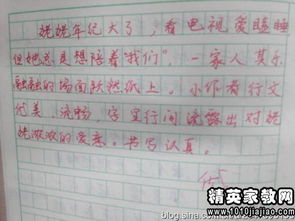 姥姥年纪大了，看电视爱瞌睡
但她总是想陪着“我们”。一家人其乐
融融的场面跃然纸上。小作者行文
优美、流畅，字里行间流露出对姥
姥浓浓的爱意。书写认真。
blog.sina.com.cn
精英家教网
www.1010jiajiao.com